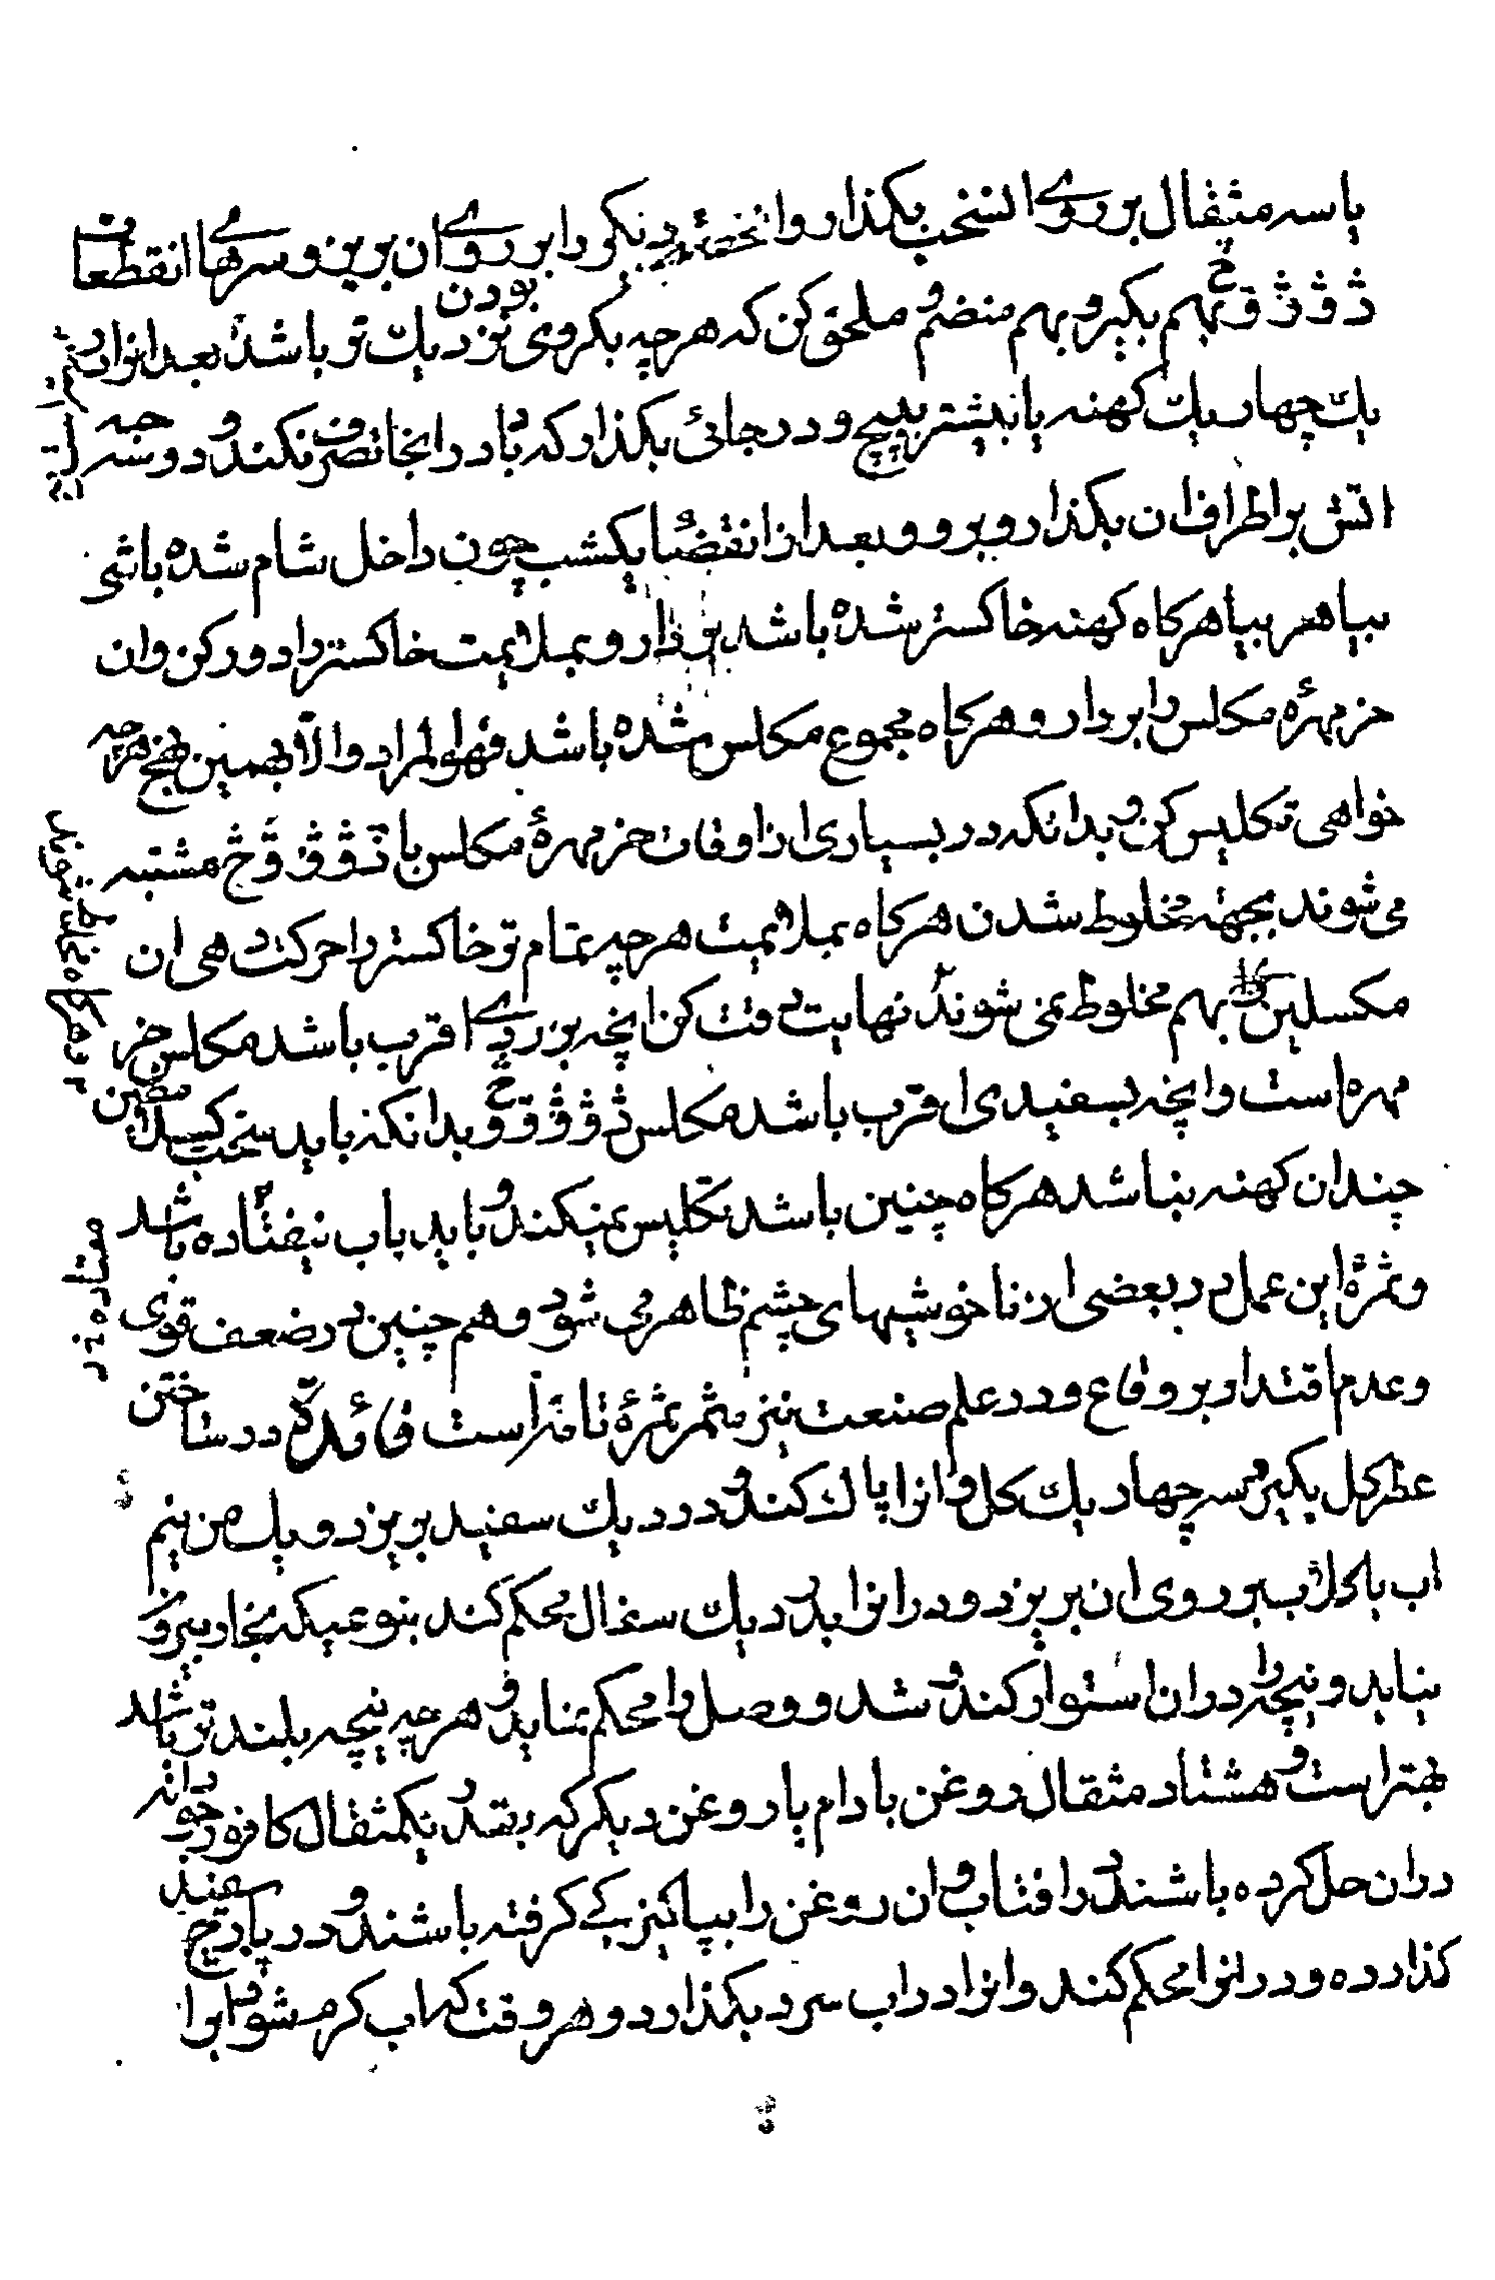 یا سه مثقال بر روی ان سخب بکذار و انخه دنکی را بر روی ان بریز و سرهای ان قطعات
ڎ ۋ ڎ ق بهم بکیر و بهم منضم و ملحق کن که هر چه بکروی بودن نزدیك تو باشد بعد انرا در
یك چهار یك کهنه یا بیشتر بپیچ و در جائی بکذار که باد در انجا تصرف نکند و دو سه حبه
اتش بر اطراف ان بکذار و برو و بعد از انقضاء یکشب چون داخل شام شده باشی
بیا هر کاه کهنه خاکستر شده باشد بردار و بملایمت خاکستر را دور کن و ان
خر مهرهٔ مکلس را بردار و هر کاه مجموع مکلس شده باشد فهو المراد و الّا بهمین نهج هر چه
خواهی تکلیس کن و بدانکه در بسیاری از اوقات خر مهرهٔ مکلس با مشتبه
می شوند بجههٔ مخلوط شدن هر کاه بملایمت هر چه تمام تر خاکستر را حرکت دهی ان
مکسلین بهم مخلوط نمی شوند نهایت دقت کن انچه بزردی اقرب باشد مکلس خر
مهره است و انچه بسفیدی اقرب باشد مکلس بدانکه باید سخب
چندان کهنه نباشد هر کاه چنین باشد تکلیس نمیکند و باید باب نیفتاده باشد
و ثمرهٔ این عمل در بعضی از ناخوشیهای چشم ظاهر می شود و هم چنین در ضعف قوی
و عدم اقتدار بر وقاع و در علم صنعت نیز مثمر ثمرهٔ تامّه است فائدة در ساختن
عطر کل بکیر سه چهار یك کل و انرا پاك کند و در دیك سفید بریزد و یك من نیم
اب یا کلاب بر روی ان بریزد و در انرا بدر دیك سفال محکم کند بنوعیکه بخار بیرون
نیاید و نیچه را در ان استوار کند و سد و وصل را محکم نماید و هر چه نیچه بلند تر باشد
بهتر است و هشتاد مثقال روغن بادام یا روغن دیکر که بقدر یکمثقال کافور جودانه
در ان حل کرده باشند در افتاب و ان روغن را بپاکیزکی کرفته باشند و در پارچ سفید
کذارده و در انرا محکم کند و انرا در اب سرد بکذارد و هر وقت که اب کرم شود ابرا